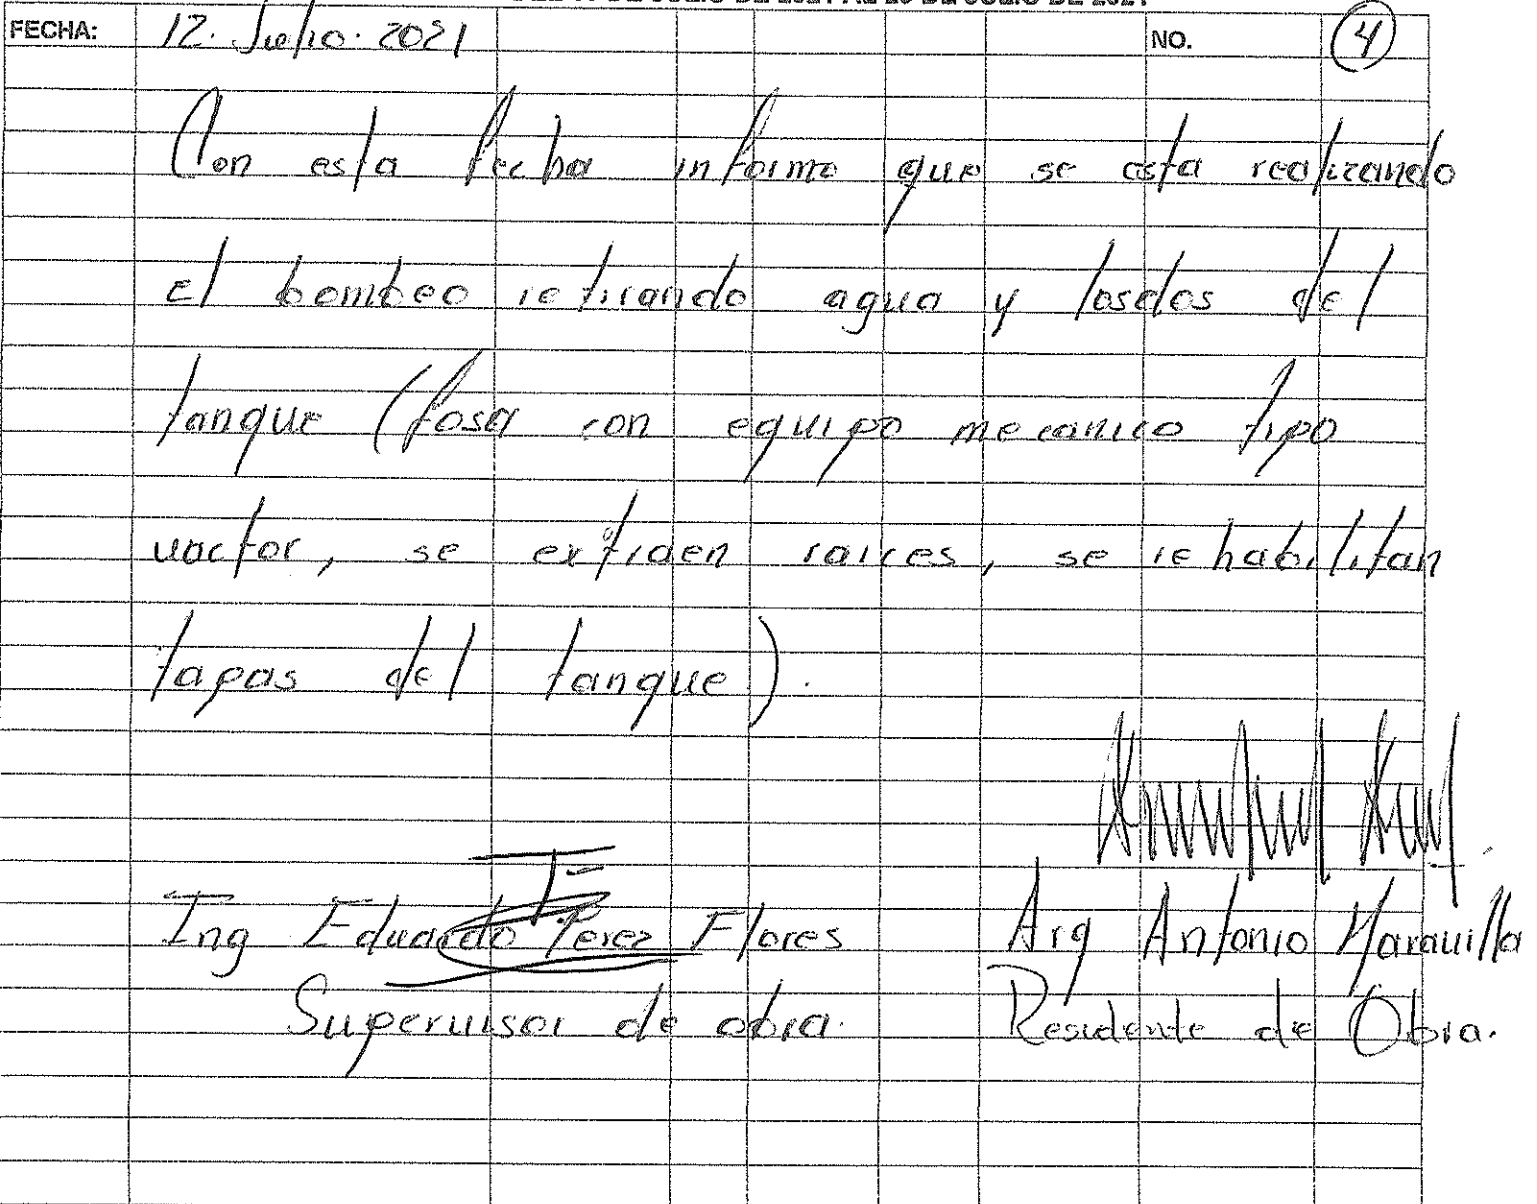 FECHA: 12. Julio. 2021 NO. 4
Con esta fecha informo que se esta realizando
el bombeo retirando agua y losdos del
tanque (fosa con equipo mecanico tipo
vactor, se extraen raices, se rehabilitan
tapas del tanque).
Ing Eduardo Perez Flores Arq Antonio Maravilla
Supervisor de obra. Residente de Obra.